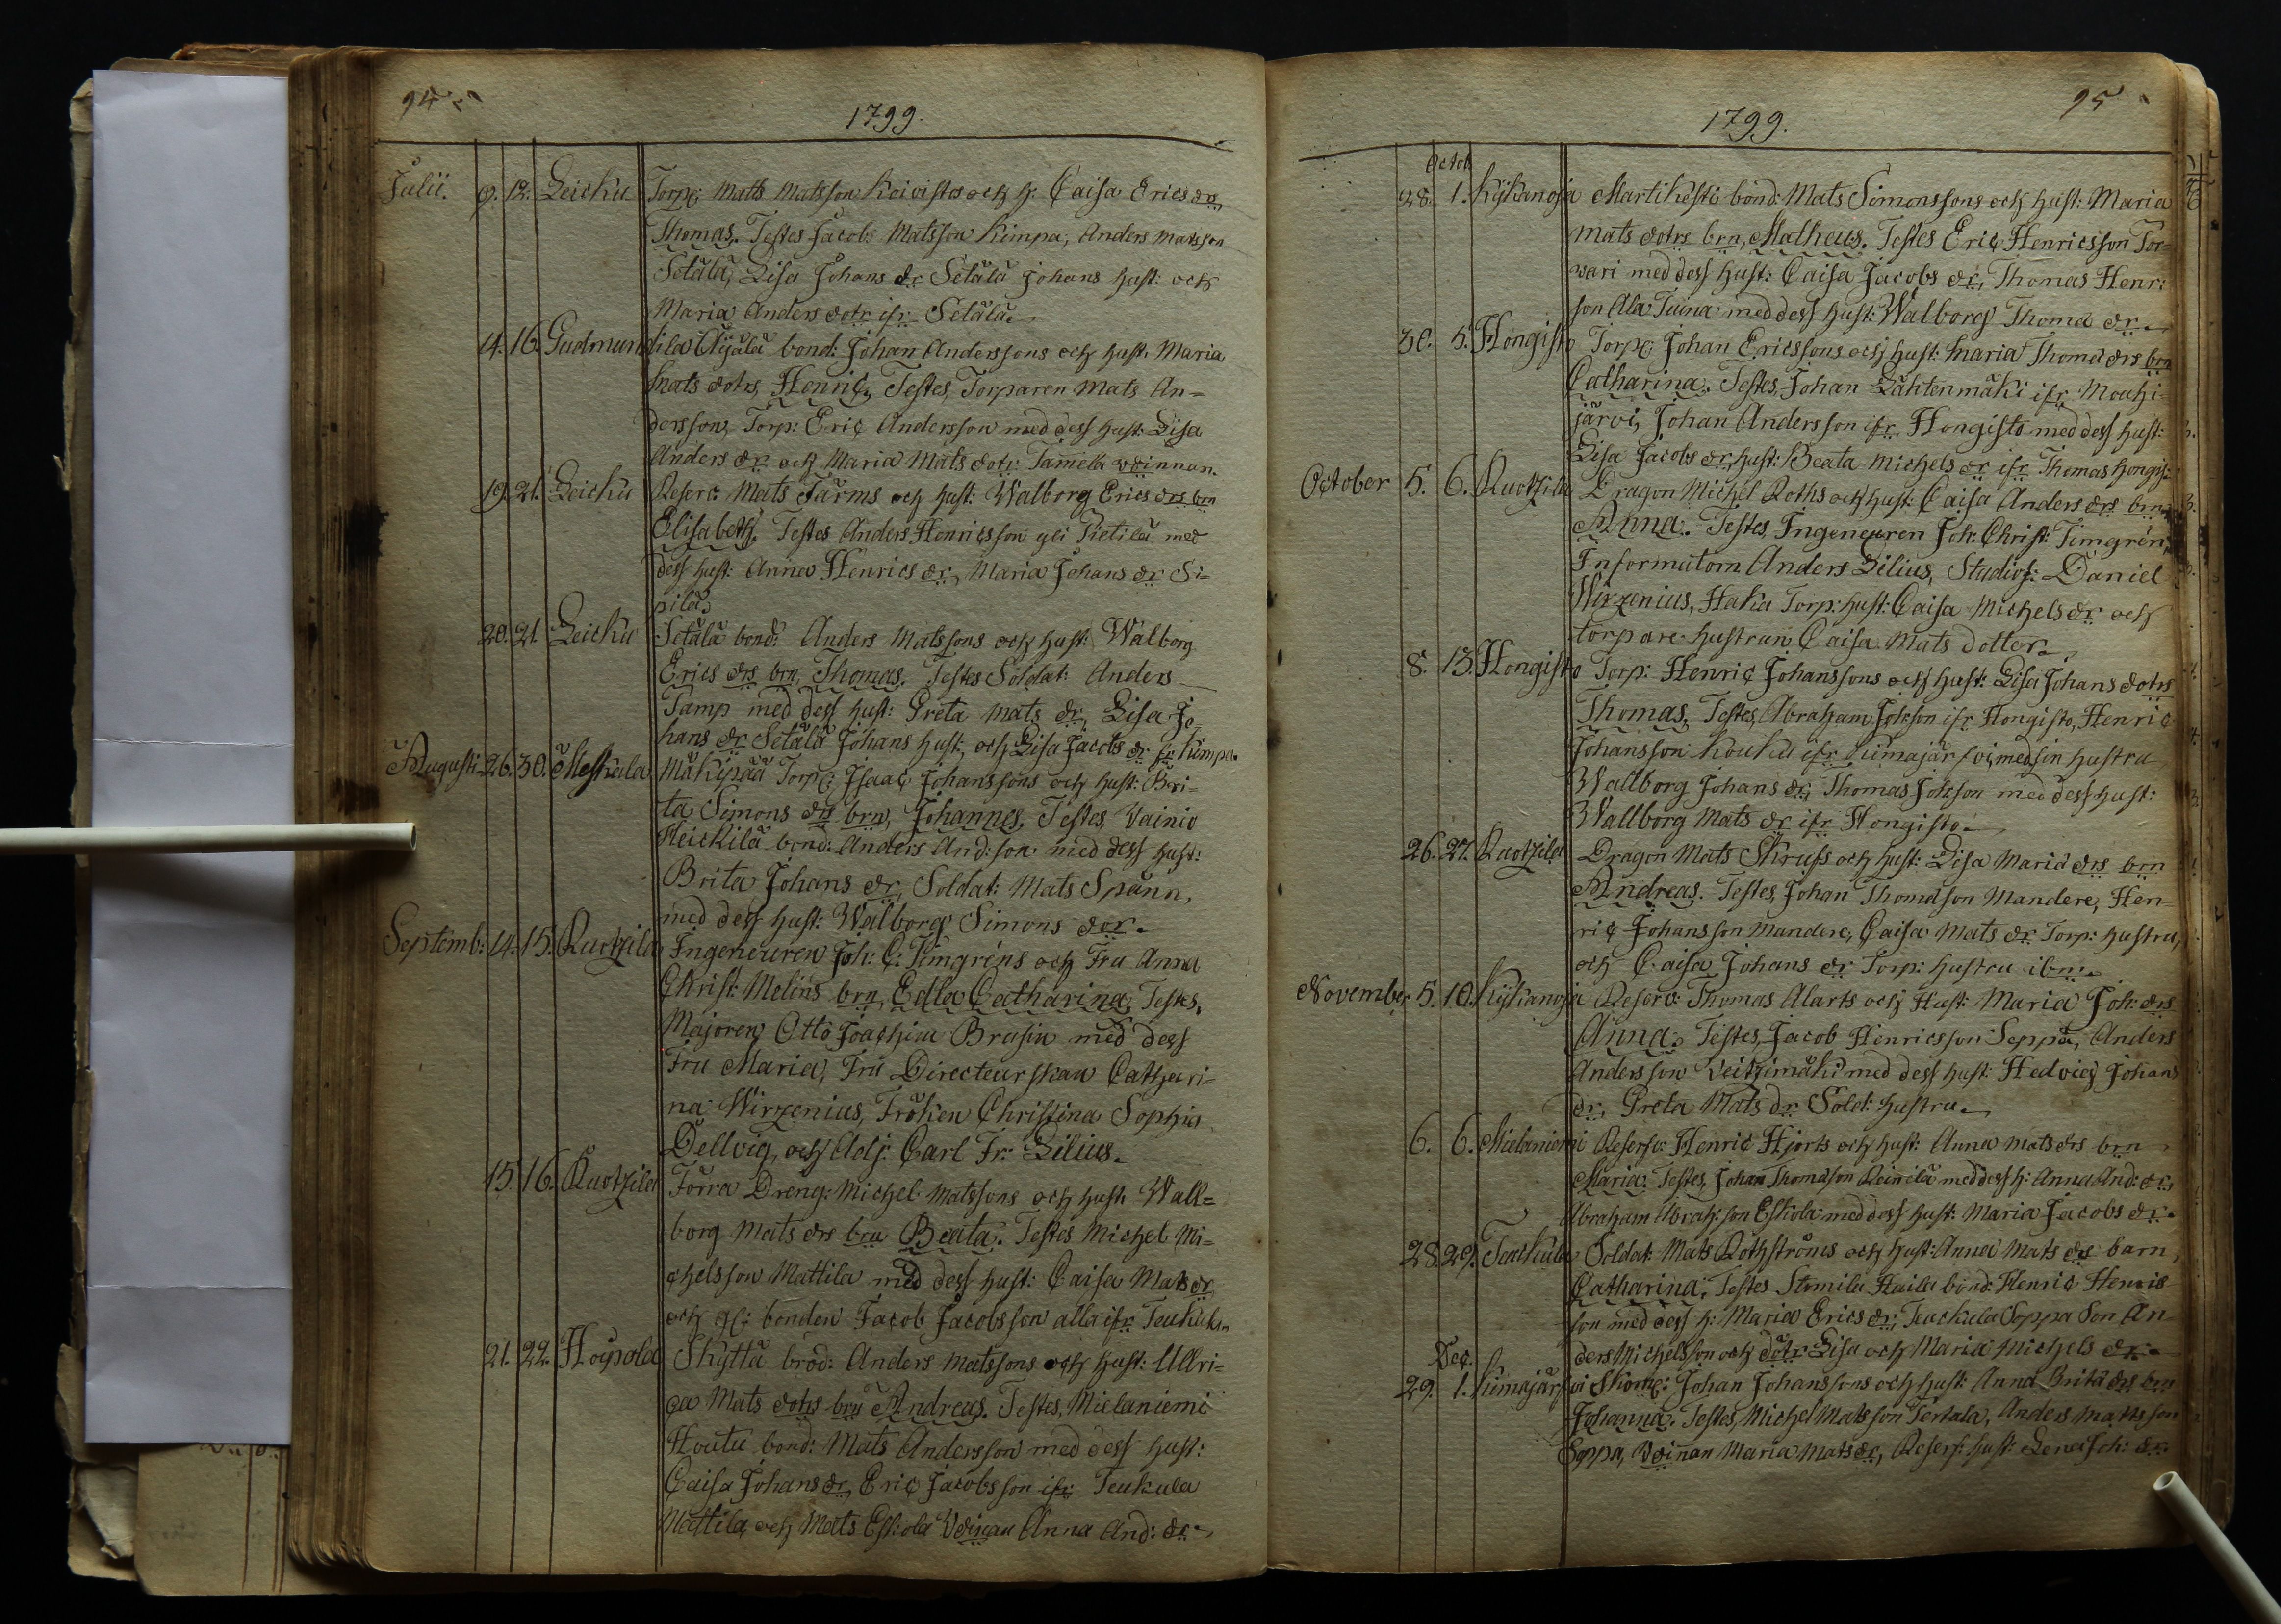 94
1799.
Julii. 9. 12. Leicku Torp: Matts Matsson Koivistos och h: Caisa Erics dr,
Thomas. Testes Jacob Matsson Kimpa, Anders Matsson
Setälä, Lisa Johans dr Setälä Johans hust: och
Maria Anders dotr ifr Setälä.
14. 16. Gudmundila Äijälä bond: Johan Anderssons och hust. Maria
Mats dotrs, Henric, Testes, Torparen Mats An=
dersson, Torp: Eric Andersson med dess hust: Lisa
Anders dr och Maria Mats dotr. Tamela
19. 21. Leicku Reserv: Mats Järms och hust: Walborg Erics drs brn
Elisabeth. Testes Anders Henricsson Pietilä med
dess hust: Anna Henrics dr, Maria Johans dr Si=
pilä.
20. 21. Leicku Setälä bond: Anders Matssons och hust: Walborg
Erics drs brn, Thomas. Testes Soldat: Anders
Tamp med dess hust: Greta Mats dr, Lisa Jo
hans dr Setälä Johans hust, och Lisa Jacobs dr fr Kimpa.
Augusti 26. 30. Meskala Mäkipää Torp: Isaac Johanssons och hust: Bri=
ta Simons drs brn, Johannes. Testes, Vainio
Heickilä bond: Anders And:son med dess hust:
Brita Johans dr, Soldat: Mats Spänn,
med dess hust: Walborg Simons dor.
Septemb: 14. 15. Ruotzila Ingeneuren Joh: C: Timgréns och Fru Anna
Christ: Melins brn, Edla Catharina, Testes,
Majoren Otto Joachim Brusin med dess
Fru Maria, Fru Directeurskan Cathari=
na Wirzenius, Fröken Christina Sophia
Dellvig, och Adj: Carl Fr: Lilius.
15. 16. Ruotzila Törra Dreng: Michel Matssons och hust. Wall=
borg Mats drs brn Beata. Testes Michel Mi=
chelsson Mattila med dess hust: Caisa Mats dr
och gl: bonden Jacob Jacobsson alla ifr: Teukula.
21. 22. Hoipola Skyttä bond: Anders Matssons och hust: Ullri=
ca Mats dotrs brn Andreas. Testes, Mielaniemi
Houtu bond: Mats Andersson med dess hust:
Caisa Johans dr, Eric Jacobsson ifr: Teukula
Mattila och Mats Eskola Anna And: dr.
95
1799.
Octob
28. 1. Kykänoja Martikesti bond: Mats Simonssons och hust: Maria
Mats dotrs brn, Matheus. Testes Eric Henricsson Tor=
wari med dess hust: Caisa Jacobs dr, Thomas Henr:
son Ala Tuina med dess hust: Walborg Thomæ dr.
30. 5. Hongisto Torp: Johan Ericssons och hust: Maria Thomæ drs brn
Catharina. Testes, Johan Lähtenmäki ifr Mouhi=
järvi, Johan Andersson ifr Hongisto med dess hust:
Lisa Jacobs dr, hust: Beata Michels dr ifr Thomas Hongis:
October 5. 6. Ruotzila Dragon Michel Roths och hust: Caisa Anders drs brn
Anna. Testes, Ingeneuren Joh: Christ: Timgrén,
Informatorn Anders Lilius, Studios: Daniel
Wirzenius, Haka Torp: hust: Caisa Michels dr och
torpare hustrun Caisa Mats dotter.
8. 13. Hongisto Torp: Henric Johanssons och hust: Lisa Johans dotrs
Thomas, Testes, Abraham Johsson ifr Hongisto, Henric
Johansson Kouku ifr Kiimajärfvi med sin hustru
Wallborg Johans dr, Thomas Johsson med dess hust:
Wallborg Mats dr ifr Hongisto.
26. 27. Ruotzila Dragon Mats Skrufs och hust: Lisa Maria drs brn
Andreas. Testes, Johan Thomasson Mandere, Hen=
ric Johansson Mandere, Caisa Mats dr Torp: hustru,
och Caisa Johans dr Torp: hustru ibm.
November 5. 10. Kykänoja Reserv: Thomas Alarts och Hust: Maria Joh: drs
Anna. Testes, Jacob Henricsson Seppä, Anders
Andersson Veitzimäki med dess hust: Hedvig Johans
dr, Greta Mats dr Sold: hustru.
6. 6. Mielaniemi Reserv: Henric Hjorts och hust: Anna Mats drs brn
Maria. Testes, Johan Thomasson Reinilä med dess h: Anna And: dr,
Abraham Abrah:son Eskola med dess hust: Maria Jacobs dr.
28. 29. Teukula Soldat: Mats Rothströms och hust: Anna Mats drs barn,
Catharina, Testes Stomila Haila bond: Henric Henric
son med dess h: Maria Erics dr, Teukula Soppa Son An
ders Michelsson och dotr Lisa och Maria Michels dr.
Dec.
29. 1. Kimajärfvi Skom: Johan Johanssons och hust: Anna Brita drs brn
Johanna. Testes, Michel Matsson Tertala, Anders Mattsson
Soppa, Maria Mats dr, Reserf: hust: dr.